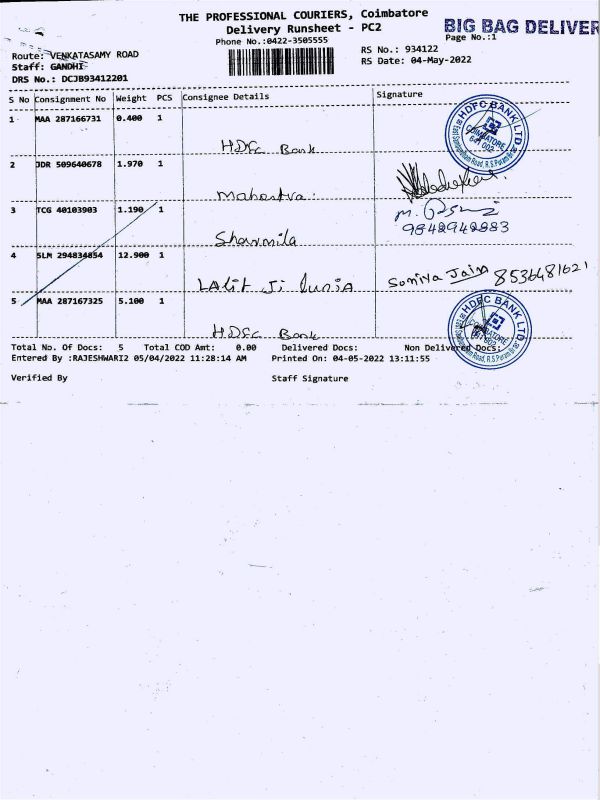 THE PROFESSIONAL COURIERS, Coimbatore
Delivery Runsheet - PC2
BIG BAG DELIVER
Phone No.:0422-3505555
Page No.:1
Route: VENKATASAMY ROAD
RS No.: 934122
Staff: GANDHI
RS Date: 04-May-2022
DRS No.: DCJB93412201
S No Consignment No Weight PCS Consignee Details Signature
1 MAA 287166731 0.400 1
HDFC BANK LTD
COIMBATORE
641 002
HDFC Bank
2 JDR 509640678 1.970 1
3 TCG 40103903 1.190 1
9842942883
Sharmila
4 SLM 294834854 12.900 1
LAlit Ji lunia Somiya Jain 8536481621
5 MAA 287167325 5.100 1
HDFC BANK LTD
COIMBATORE
HDFC Bank
Total No. Of Docs: 5 Total COD Amt: 0.00 Delivered Docs: Non Delivered Docs:
Entered By :RAJESHWARI2 05/04/2022 11:28:14 AM Printed On: 04-05-2022 13:11:55
Verified By Staff Signature